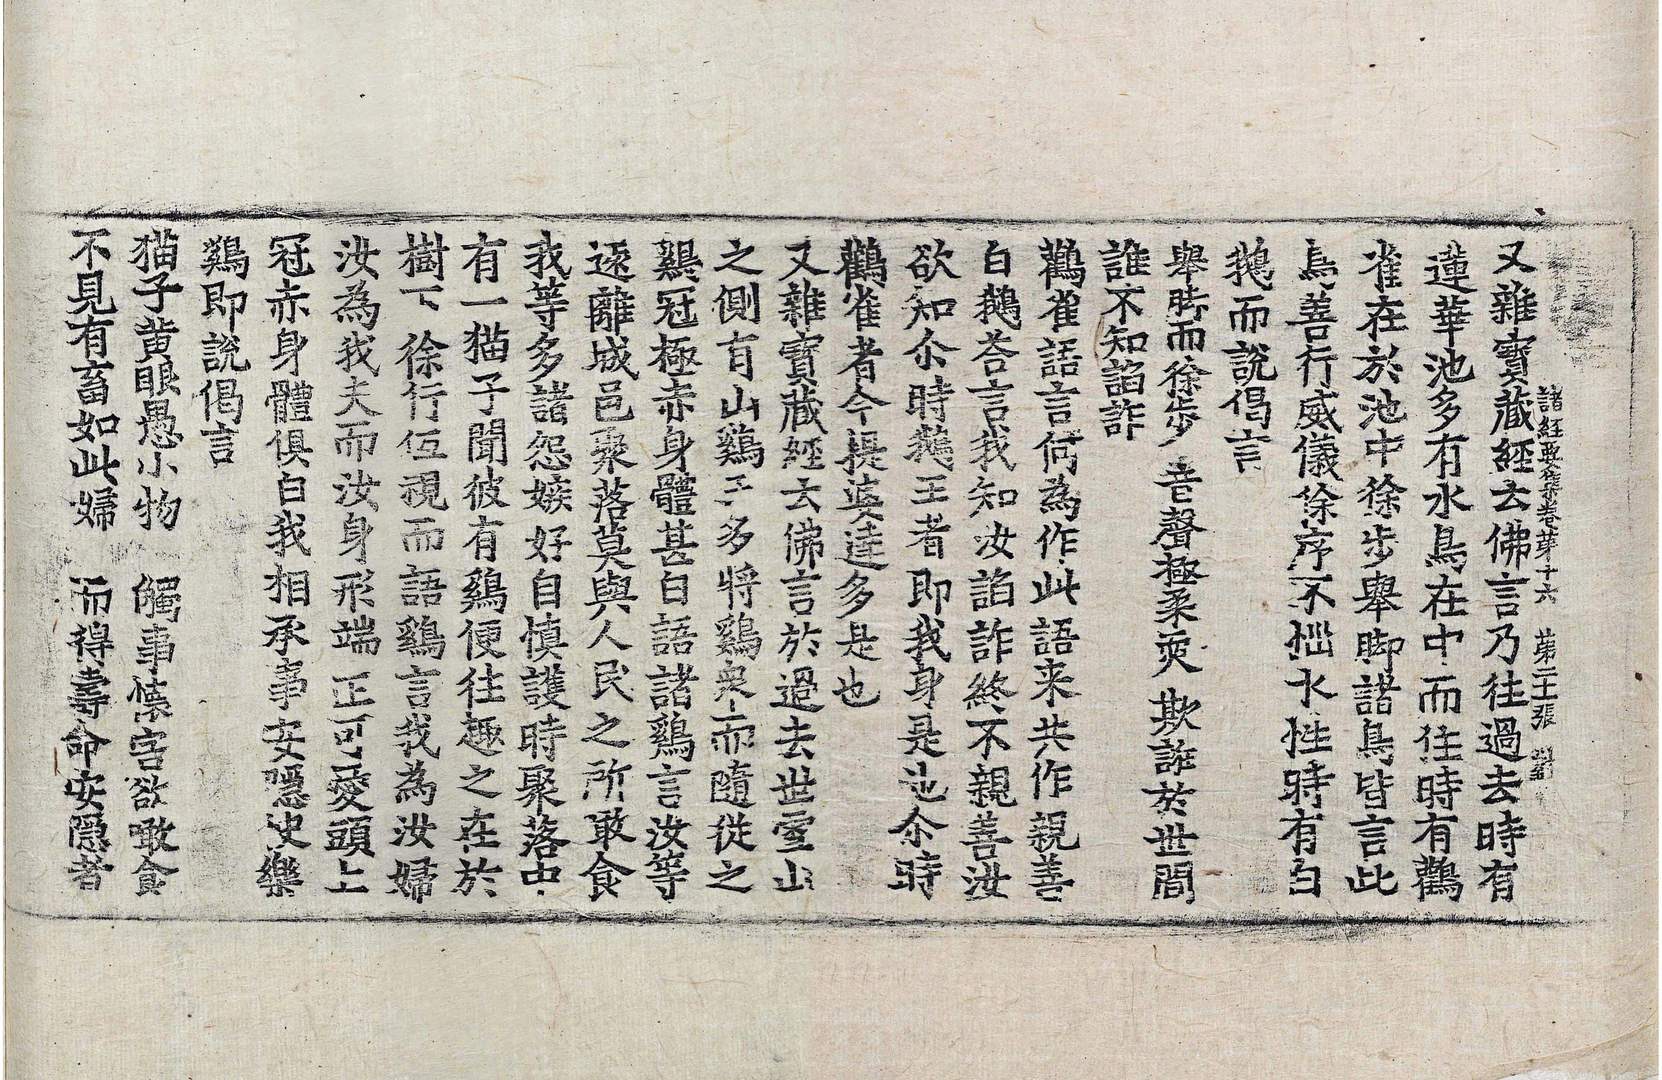 諸經要集卷苐十六 苐二十張 對
又雜寶藏經云佛言乃往過去時有
蓮華池多有水鳥在中而住時有鸛
雀在於池中徐步舉脚諸鳥皆言此
鳥善行威儀徐序不惱水性時有白
鵝而說偈言
舉脚而徐步 音聲極柔耎 欺誑於世間
誰不知諂詐
鸛雀語言何為作此語来共作親善
白鵝荅言我知汝諂詐終不親善汝
欲知尒時鵝王者即我身是也尒時
鸛雀者今提婆達多是也
又雜寶藏經云佛言於過去世雪山
之側有山鷄王多將鷄衆而隨從之
鷄冠極赤身體甚白語諸鷄言汝等
逺離城邑聚落莫與人民之所噉食
我等多諸怨嫉好自慎護時聚落中
有一猫子聞彼有鷄便往趣之在於
樹下徐行伭視而語鷄言我為汝婦
汝為我夫而汝身形端正可愛頭上
冠赤身體俱白我相承事安隱快樂
鷄即說偈言
猫子黃眼愚小物 觸事懷害欲噉食
不見有畜如此婦 而得壽命安隱者